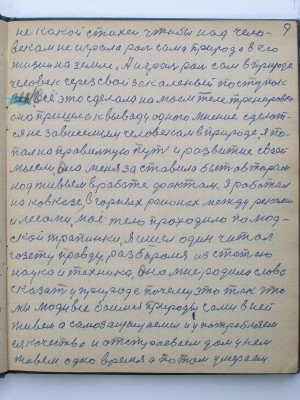 9
не какой стихеи чтобы над чело-
веком не играла рол сама природа в его
жизни на земле, А играл рол сам в природе
человек через свой закаленый поступок
всё это сделала на моем теле тренировка
оно пришло к выводу одного мнение сделат-
ся не зависемым человеком в природе я по-
пал на правильную путу и развитие своей
мысли, она меня заставила быть автором
под тивлем в работе фактам. Я работал
на ковказе, в горных районах между реками
и лесами, моё тело проходило по люд-
ской тропинки, я шел один читал
газету правду, разбирался из статею
наука и техника, она мне родила слово
сказать у природе почему это так это
мы люди все боимся природы сами в ней
живем а самозащищаемся и употребляем
ея качество и отстраеваем дом у нем
живем одно время а потом умераем